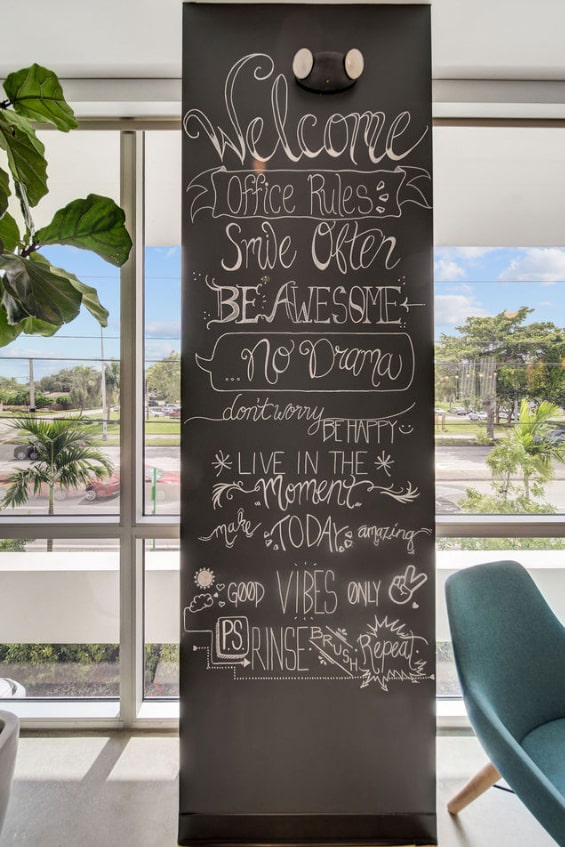 Welcome
Office Rules:
Smile Often
BE AWESOME
...No Drama
don't worry
BE HAPPY
LIVE IN THE
Moment
make TODAY amazing
GOOD VIBES ONLY
P.S. RINSE BRUSH Repeat